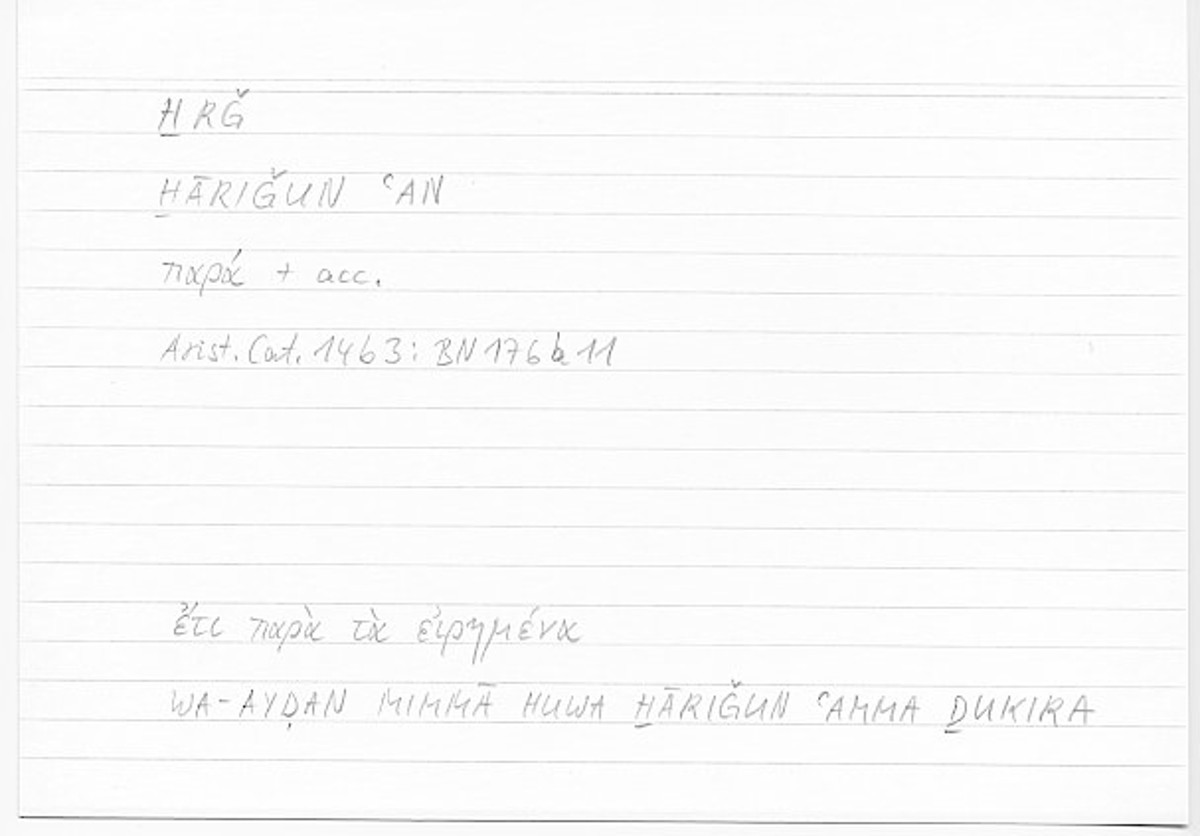 ẖRǦ
H̱ĀRIǦUN ʿAN
παρά + acc.
Arist. Cat. 14b3: BN176b11
ἔτι παρὰ τὰ εἰρημένα
WA-AYḌAN MIMMĀ HUWA H̱ĀRIǦUN ʿAMMA ḎUKIRA